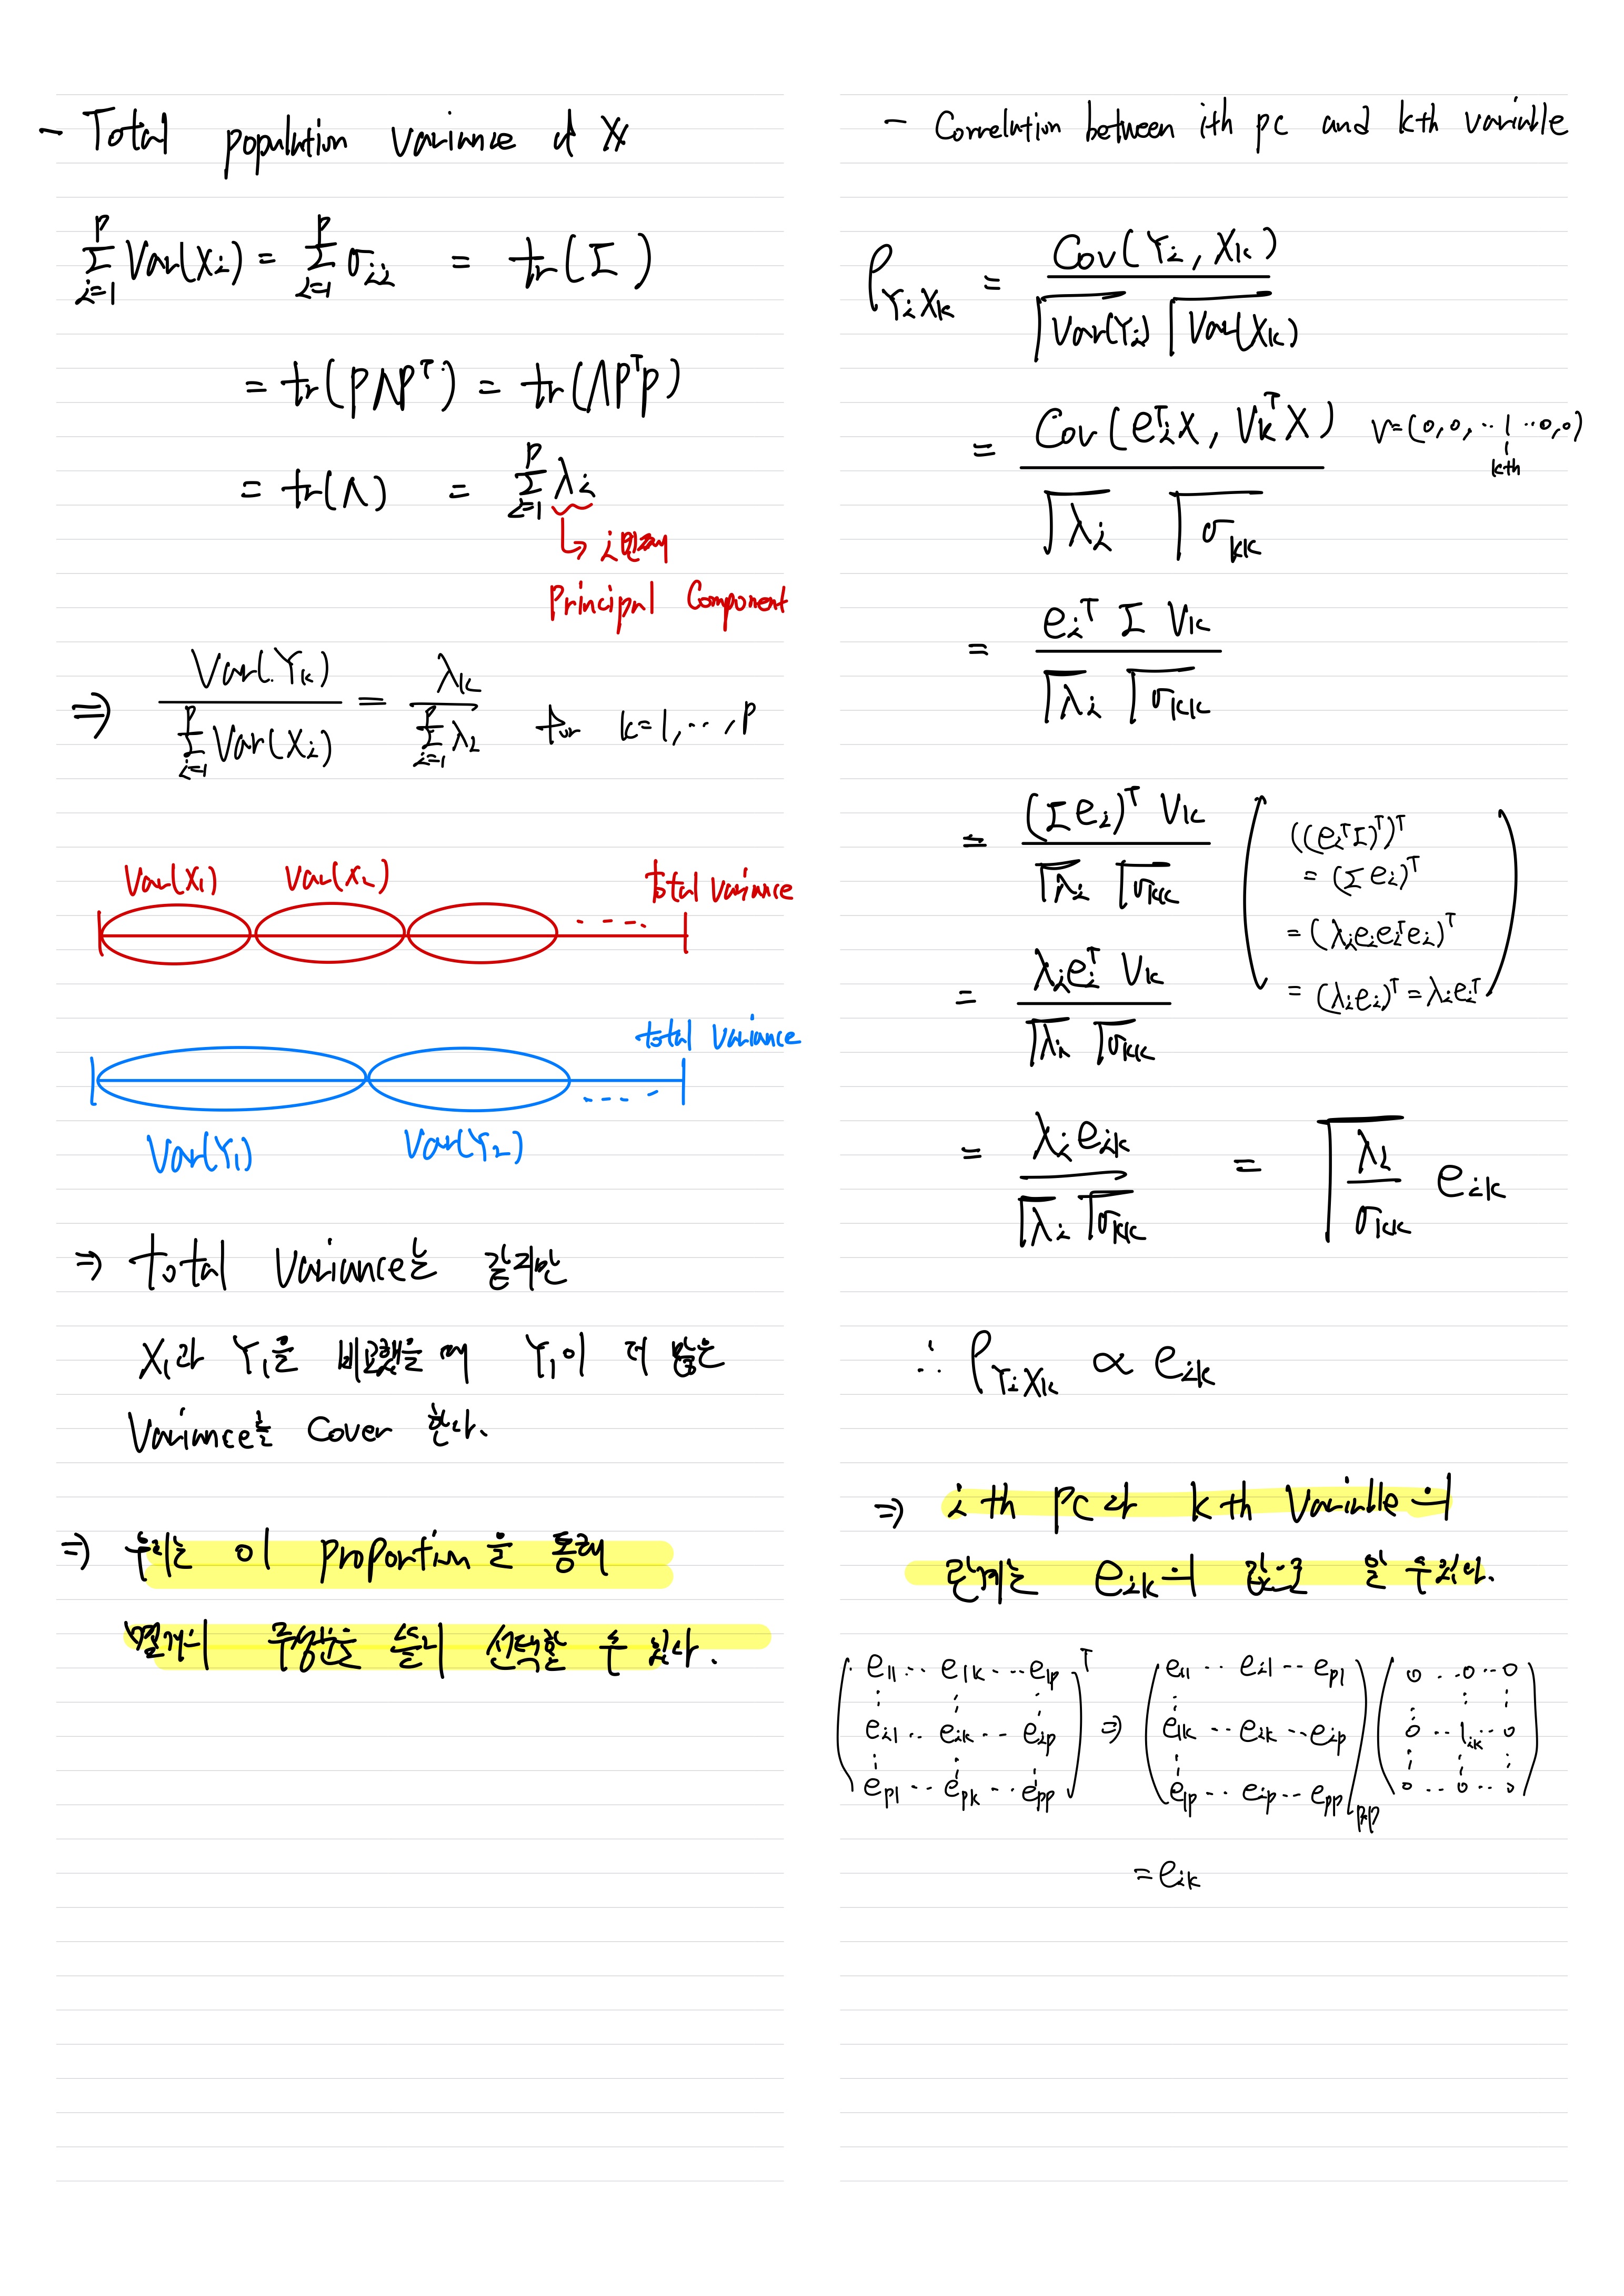 - Total population variance of X
∑_{i=1}^{p} Var(X_i) = ∑_{i=1}^{p} σ_{ii} = tr(Σ)
= tr(PΛP^T) = tr(ΛP^TP)
= tr(Λ) = ∑_{i=1}^{p} λ_i
↳ i번째
Principal Component
⇒ Var(Y_k) / ∑_{i=1}^{p} Var(X_i) = λ_k / ∑_{i=1}^{p} λ_i for k=1,…,p
Var(X_1) Var(X_2) total variance
total variance
Var(Y_1) Var(Y_2)
⇒ total Variance는 같지만
X_1과 Y_1을 비교했을 때 Y_1이 더 많은
Variance를 Cover 한다.
⇒ 우리는 이 proportion을 통해
몇개의 주성분을 쓸지 선택할 수 있다.
- Correlation between ith pc and kth variable
ρ_{Y_iX_k} = Cov(Y_i, X_k) / √Var(Y_i) √Var(X_k)
= Cov(e_i^T X, V_k^T X) / √λ_i √σ_{kk} V=(0,0,…1…0,0)
kth
= e_i^T Σ V_k / √λ_i √σ_{kk}
= (Σe_i)^T V_k / √λ_i √σ_{kk}
((e_i^TΣ)^T)^T
= (Σe_i)^T
= (λ_i e_i e_i^T e_i)^T
= (λ_i e_i)^T = λ_i e_i^T
= λ_i e_i^T V_k / √λ_i √σ_{kk}
= λ_i e_{ik} / √λ_i √σ_{kk} = √(λ_i / σ_{kk}) e_{ik}
∴ ρ_{Y_iX_k} ∝ e_{ik}
⇒ i th pc와 k th Variable의
관계는 e_{ik}의 값으로 알 수 있다.
( e_{11} … e_{1k} … e_{1p} )^T ⇒ ( e_{11} … e_{i1} … e_{p1} ) ( 0 … 0 … 0 )
( e_{i1} … e_{ik} … e_{ip} ) ( e_{1k} … e_{ik} … e_{ip} ) ( 0 … 1_{ik} … 0 )
( e_{p1} … e_{pk} … e_{pp} ) ( e_{1p} … e_{ip} … e_{pp} )_{p×p} ( 0 … 0 … 0 )
= e_{ik}